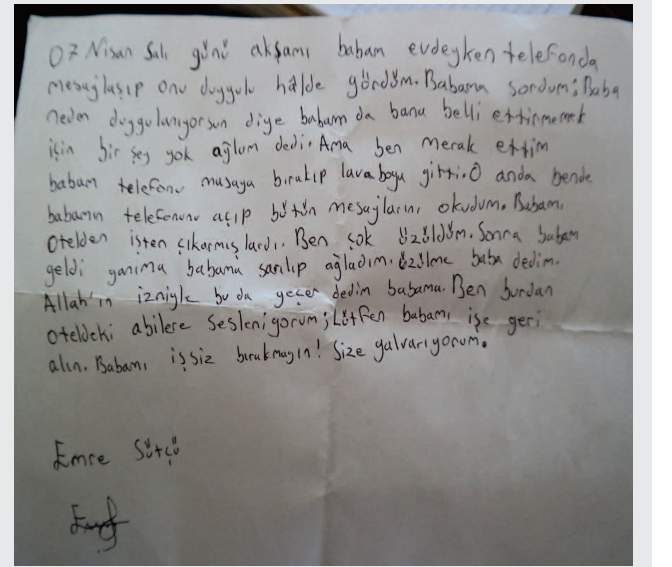 07 Nisan Salı günü akşamı babam evdeyken telefonda
mesajlaşıp onu duygulu hâlde gördüm. Babama sordum; Baba
neden duygulanıyorsun diye babam da bana belli ettirmemek
için bir şey yok oğlum dedi. Ama ben merak ettim
babam telefonu masaya bırakıp lavaboya gitti. O anda bende
babamın telefonunu açıp bütün mesajlarını okudum. Babamı
otelden işten çıkarmışlardı. Ben çok üzüldüm. Sonra babam
geldi yanıma babama sarılıp ağladım. üzülme baba dedim.
Allah'ın izniyle bu da geçer dedim babama. Ben burdan
oteldeki abilere sesleniyorum; Lütfen babamı işe geri
alın. Babamı işsiz bırakmayın! Size yalvarıyorum.
Emre Sütçü